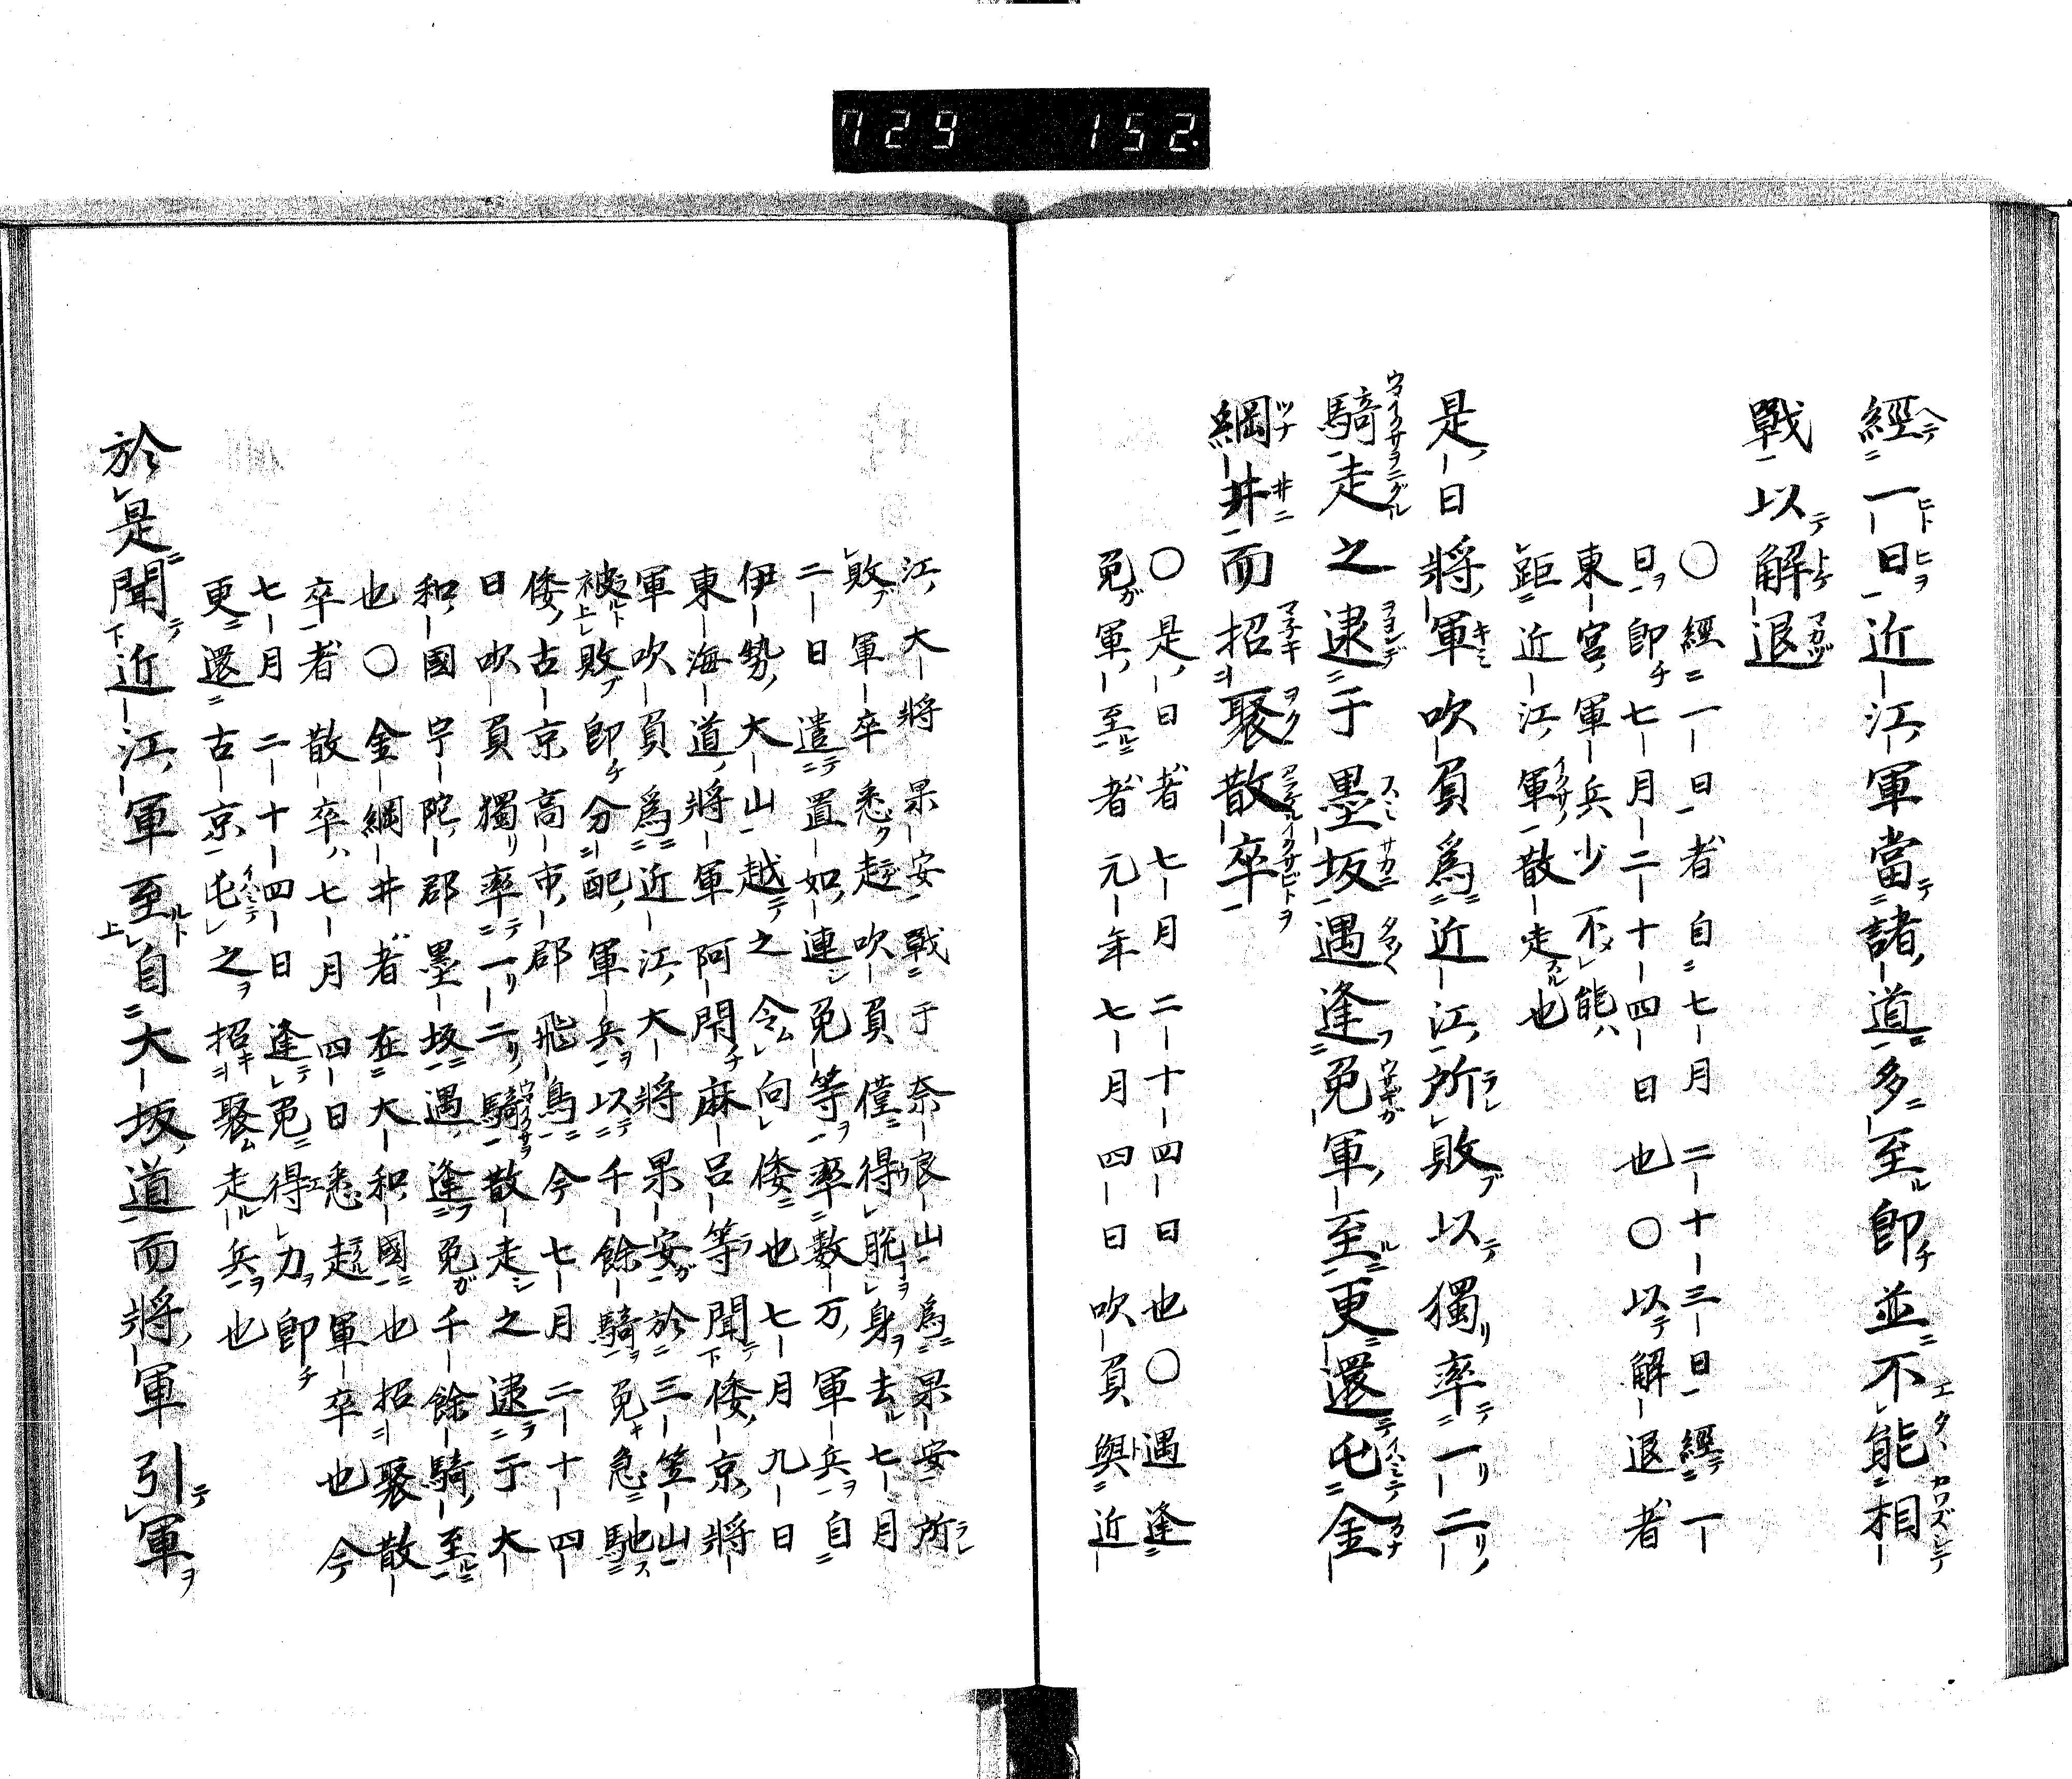 729 152.
經一日近江軍當諸道多至即並不能相
戰以解退
○經一日者自七月二十三日經一
日即七月二十四日也○以解退者
東宮軍兵少不能
距近江軍散走也
是日將軍吹負爲近江所敗以獨率一二
騎走之逮于墨坂遇逢菟軍至更還屯金
綱井而招聚散卒
○是日者七月二十四日也○遇逢
菟軍至者元年七月四日吹負與近
江大將果安戰于奈良山爲果安所
敗軍卒悉赱吹負僅得脱身去七月
二日遣置如連菟等率数万軍兵自
伊勢大山越之令向倭也七月九日
東海道將軍阿閇麻呂等聞倭京將
軍吹負爲近江大將果安於三笠山
被敗即分配軍兵以千餘騎菟急馳
倭古京高市郡飛鳥今七月二十四
日吹負獨率一二騎散走之逮于大
和國宇陀郡墨坂遇逢菟千餘騎至
也○金綱井者在大和國也招聚散
卒者散卒八七月四日悉赱軍卒也今
七月二十四日逢菟得力即
更還古京屯之招聚走兵也
於是聞近江軍至自大坂道而將軍引軍